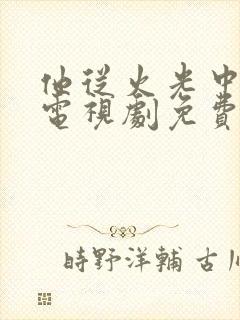 他從火光中
電視劇免費
時野洋輔 古川